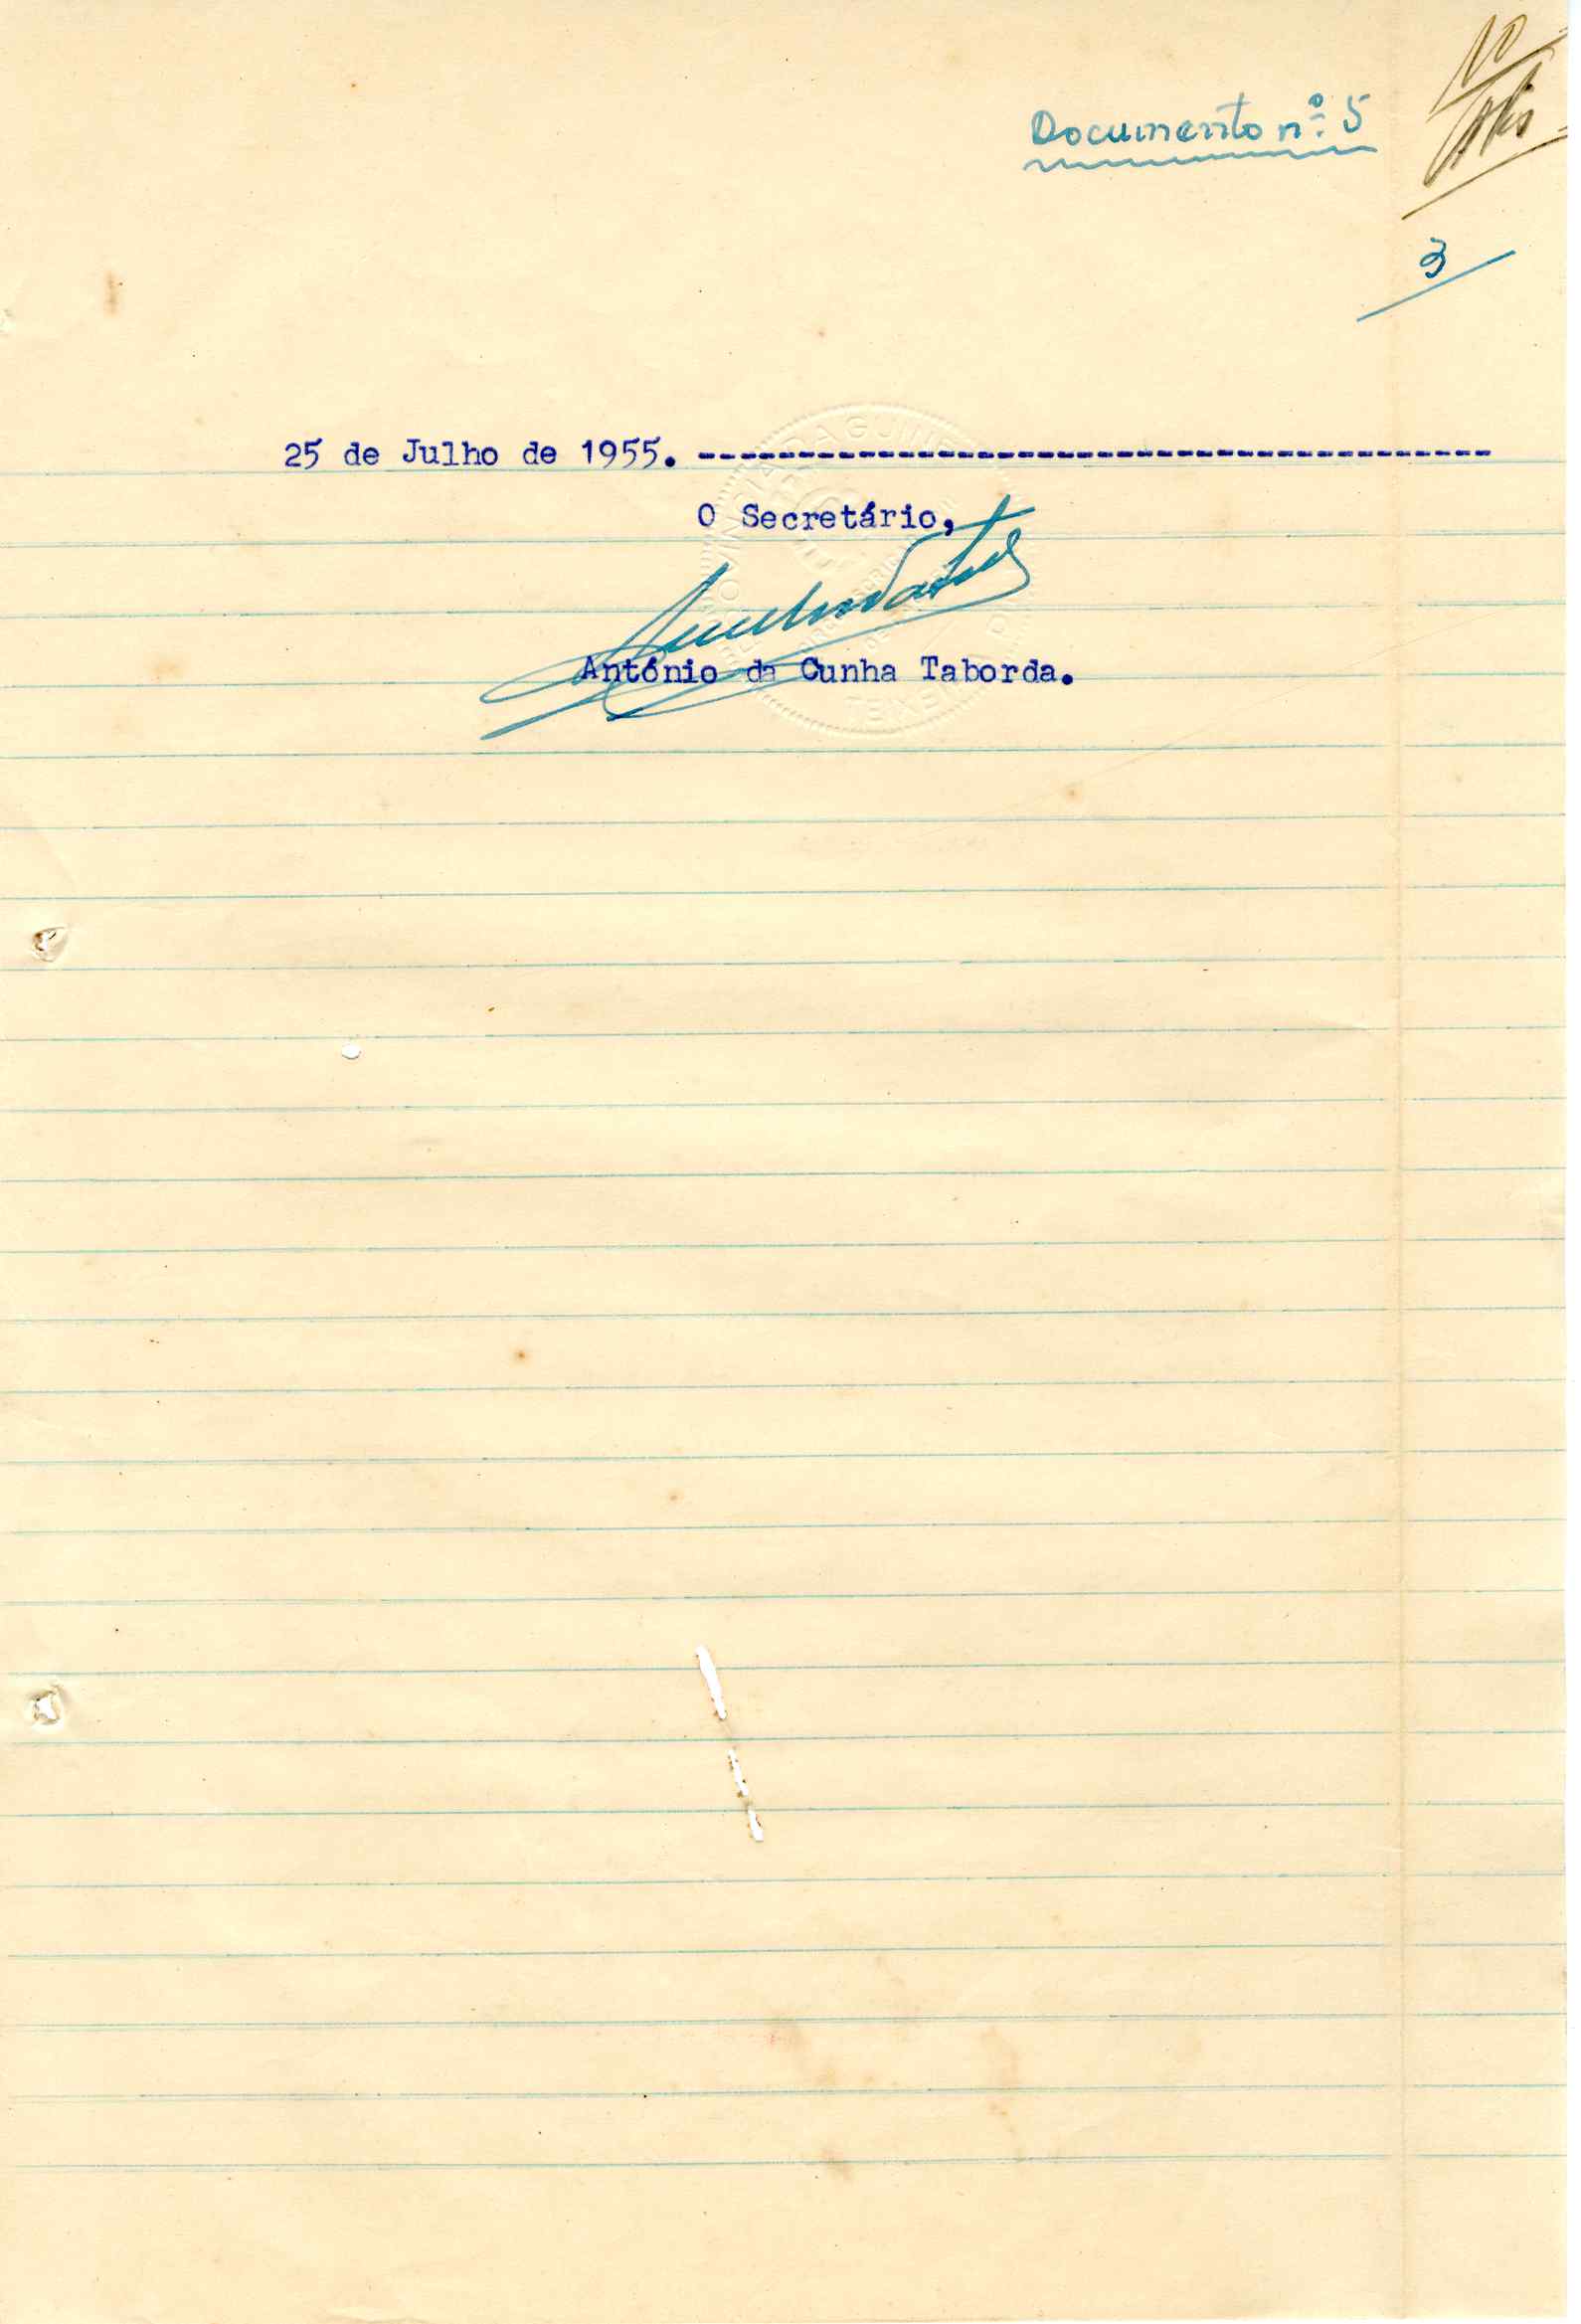 Documento nº 5
10
3
25 de Julho de 1955. ----------------------------------------
O Secretário,
António da Cunha Taborda.